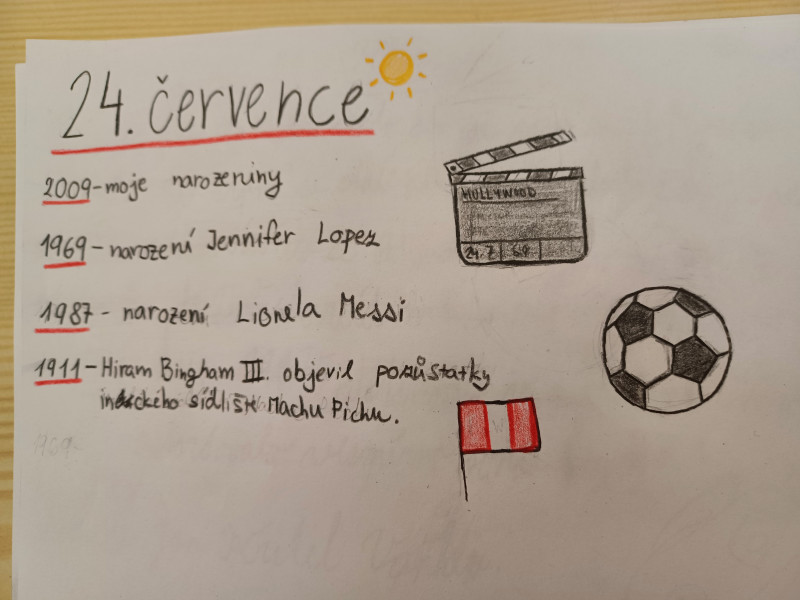 24. července
2009 - moje narozeniny
1969 - narození Jennifer Lopez
HOLLYWOOD
24. 7
1987 - narození Lionela Messi
1911 - Hiram Bingham III. objevil pozůstatky
inckého sídliště Machu Pichu.
1969